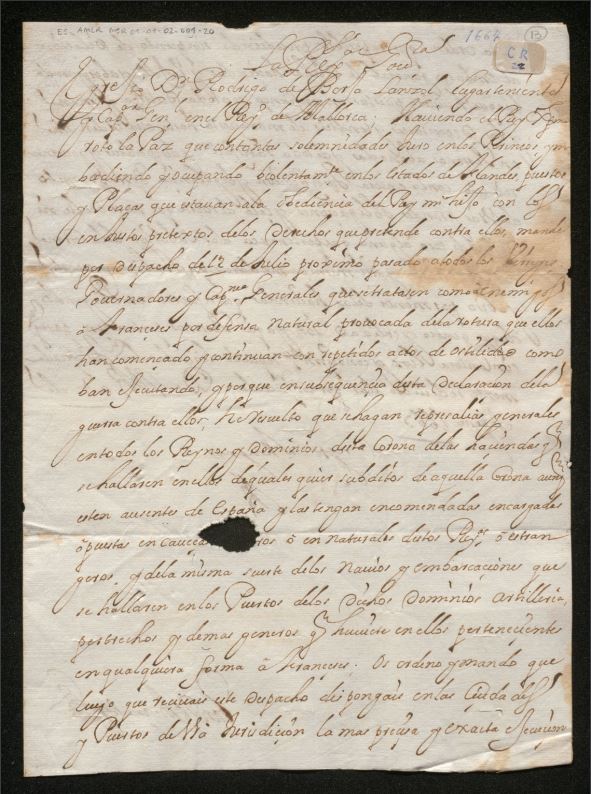 ES. AMLR 02-01-20
1667
13
CR
22
La Reyna Gov.ra
Egregio Dn Rodrigo de Borja Lanzol lugarteniente
y Cap.n Gen.l en el Rey.o de Mallorca; Haviendo el Rey X.mo
roto la Paz que con tantas solemnidades Juro en los Pirineos y in
badiendo y ocupando biolentam.te en los estados de Flandes puestos
y Plaças que estavan ala obediencia del Rey mi hijo con los
injustos pretextos delos derechos que pretende contra ellos, mande
por despacho de 12 de Julio proximo pasado atodos los
Governadores y Cap.nes Generales que se tratasen como a enemigos
a Franceses por defensa natural provocada dela rotura que ellos
han començado y continuan con repetidos actos de ostilidad como
ban executando, y porque en subsequencia desta declaracion dela
guerra contra ellos, he resuelto que se hagan represalias generales
en todos los Reynos y dominios desta Corona delas haciendas q
se hallaren en ellos de quales quier subditos de aquella Corona aunq
esten ausentes de España y las tengan encomendadas encargadas
o puestas en caveças ros o en naturales destos Rey.s o estran
geros, y dela misma suerte delos Navios y embarcaciones que
se hallaren en los Puertos delos dichos Dominios artilleria,
pertrechos y demas generos q huviere en ellos pertenecientes
en qualquiera forma a Franceses. Os ordeno y mando que
luego que recivais este despacho dispongais en las Ciudades
y Puertos de V.ra Jurisdiçion la mas precisa y exacta execucion